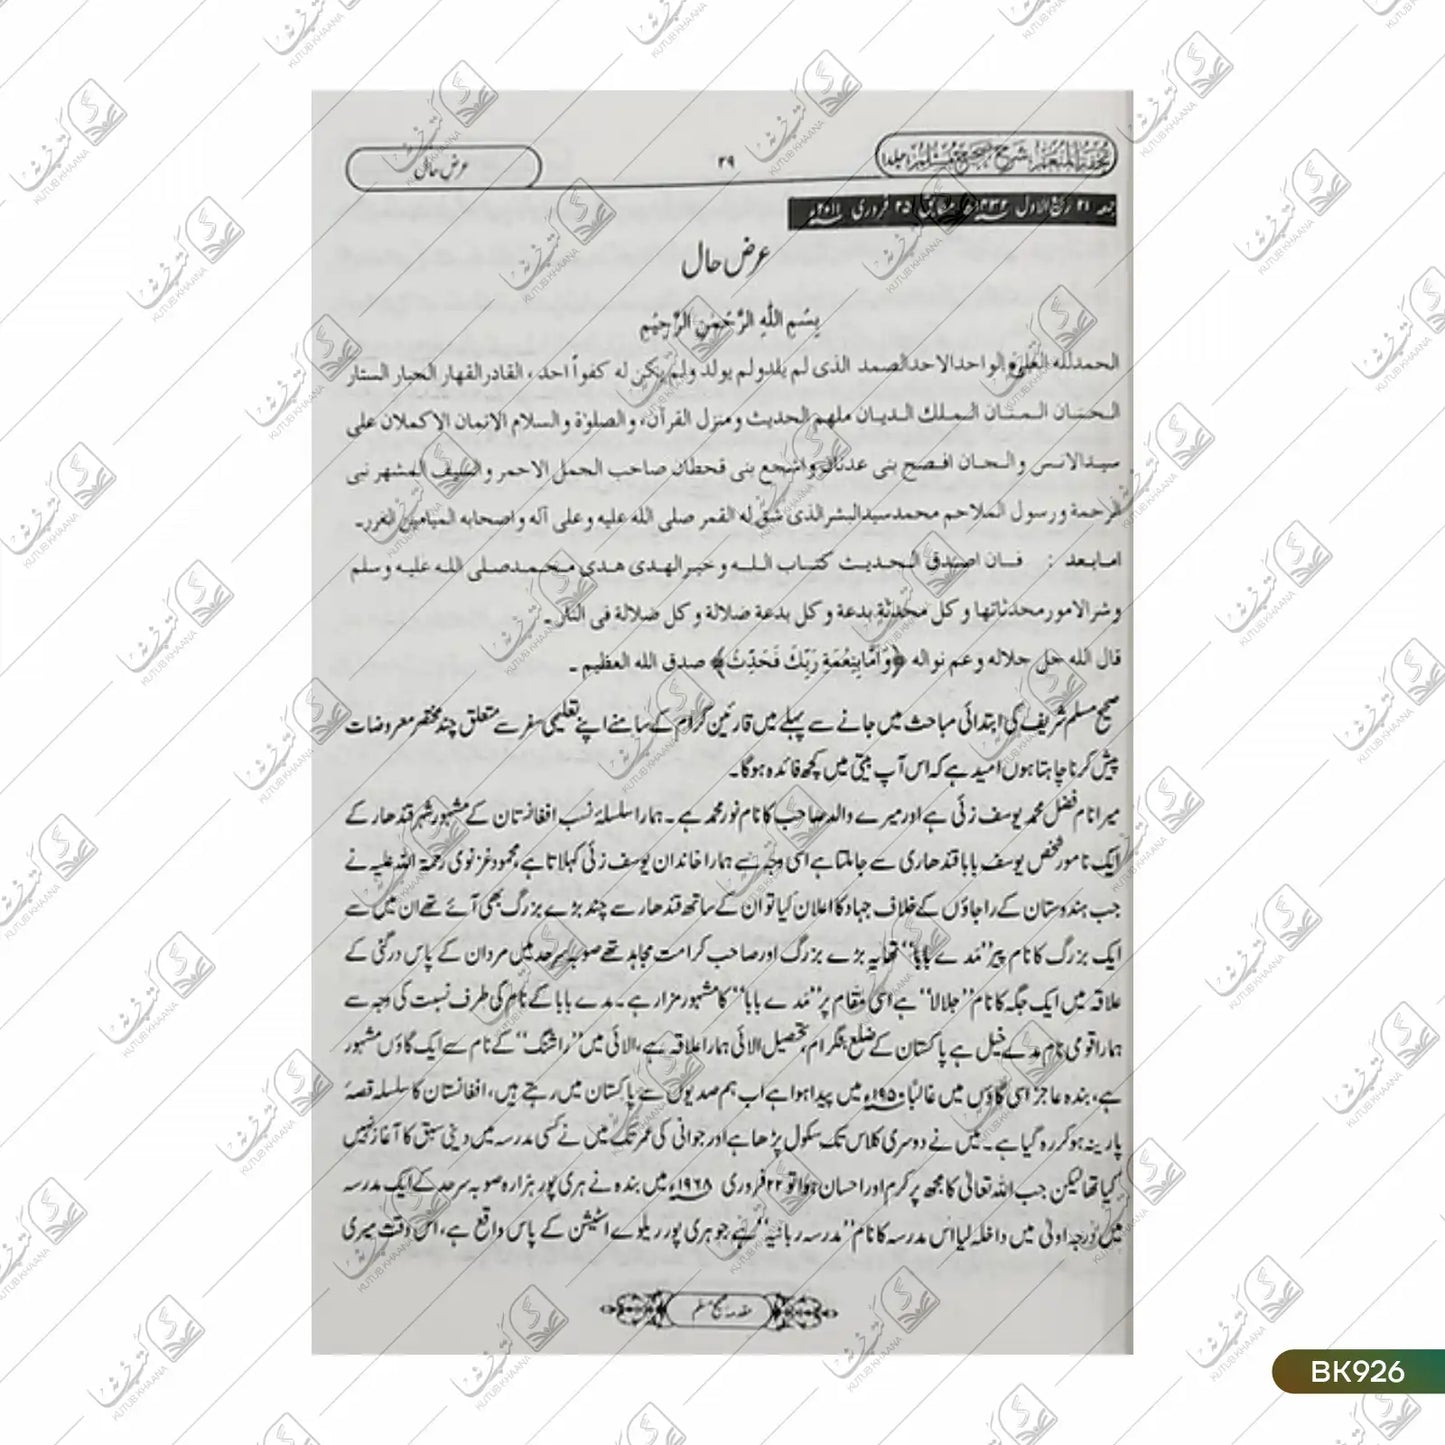 تحفۃ المنعم شرح صحیح مسلم (جلد ۱)
۲۹
عرض حال
جمعہ ۲۱ ربیع الاول ۱۴۳۲ھ مطابق ۲۵ فروری ۲۰۱۱ء
عرض حال
بِسْمِ اللّٰهِ الرَّحْمٰنِ الرَّحِيْمِ
الحمدلله العلي الواحدالاحدالصمد الذى لم يلدولم يولد ولم يكن له كفواً احد، القادرالقهار الجبار الستار
الحنان المنان الملك الديان ملهم الحديث ومنزل القرآن، والصلوٰة والسلام الاتمان الاكملان على
سيدالانس والجان افصح بنى عدنان واشجع بنى قحطان صاحب الجمل الاحمر والسيف المشهر نبى
الرحمة ورسول الملاحم محمدسيدالبشرالذى شق له القمر صلى الله عليه وعلى آله واصحابه الميامين الغرر۔
امابعد : فان اصدق الحديث كتاب الله وخيرالهدى هدى محمدصلى الله عليه وسلم
وشرالامورمحدثاتها وكل محدثة بدعة وكل بدعة ضلالة وكل ضلالة فى النار۔
قال الله جل جلاله وعم نواله ﴿وَاَمَّابِنِعْمَةِ رَبِّكَ فَحَدِّثْ﴾ صدق الله العظيم۔
صحیح مسلم شریف کی ابتدائی مباحث میں جانے سے پہلے میں قارئین کرام کے سامنے اپنے تعلیمی سفر سے متعلق چند مختصر معروضات
پیش کرنا چاہتا ہوں امید ہے کہ اس آپ بیتی میں کچھ فائدہ ہوگا۔
میرا نام فضل محمد یوسف زئی ہے اور میرے والد صاحب کا نام نور محمد ہے۔ ہمارا سلسلۂ نسب افغانستان کے مشہور شہر قندھار کے
ایک نامور شخص یوسف بابا قندھاری سے جا ملتا ہے اسی وجہ سے ہمارا خاندان یوسف زئی کہلاتا ہے، محمود غزنوی رحمۃ اللہ علیہ نے
جب ہندوستان کے راجاؤں کے خلاف جہاد کا اعلان کیا تو ان کے ساتھ قندھار سے چند بڑے بزرگ بھی آئے تھے ان میں سے
ایک بزرگ کا نام پیر ”مَدے بابا“ تھا یہ بڑے بزرگ اور صاحب کرامت مجاہد تھے صوبہ سرحد میں مردان کے پاس درگئی کے
علاقہ میں ایک جگہ کا نام ”جلالا“ ہے اسی مقام پر ”مَدے بابا“ کا مشہور مزار ہے۔ مدے بابا کے نام کی طرف نسبت کی وجہ سے
ہمارا قومی نام مدے خیل ہے پاکستان کے ضلع بٹگرام، تحصیل الائی ہمارا علاقہ ہے، الائی میں ”راشنگ“ کے نام سے ایک گاؤں مشہور
ہے، بندہ عاجز اسی گاؤں میں غالباً ۱۹۵۰ء میں پیدا ہوا ہے اب ہم صدیوں سے پاکستان میں رہتے ہیں، افغانستان کا سلسلہ قصۂ
پارینہ ہو کر رہ گیا ہے۔ میں نے دوسری کلاس تک سکول پڑھا ہے اور جوانی کی عمر تک میں نے کسی مدرسہ میں دینی سبق کا آغاز نہیں
کیا تھا لیکن جب اللہ تعالیٰ کا مجھ پر کرم اور احسان ہوا تو ۲۲ فروری ۱۹۶۸ء میں بندہ نے ہری پور ہزارہ صوبہ سرحد کے ایک مدرسہ
میں درجہ اولیٰ میں داخلہ لیا اس مدرسہ کا نام ”مدرسہ ربانیہ“ ہے جو ہری پور ریلوے اسٹیشن کے پاس واقع ہے، اس وقت میری
مقدمہ صحیح مسلم
BK926